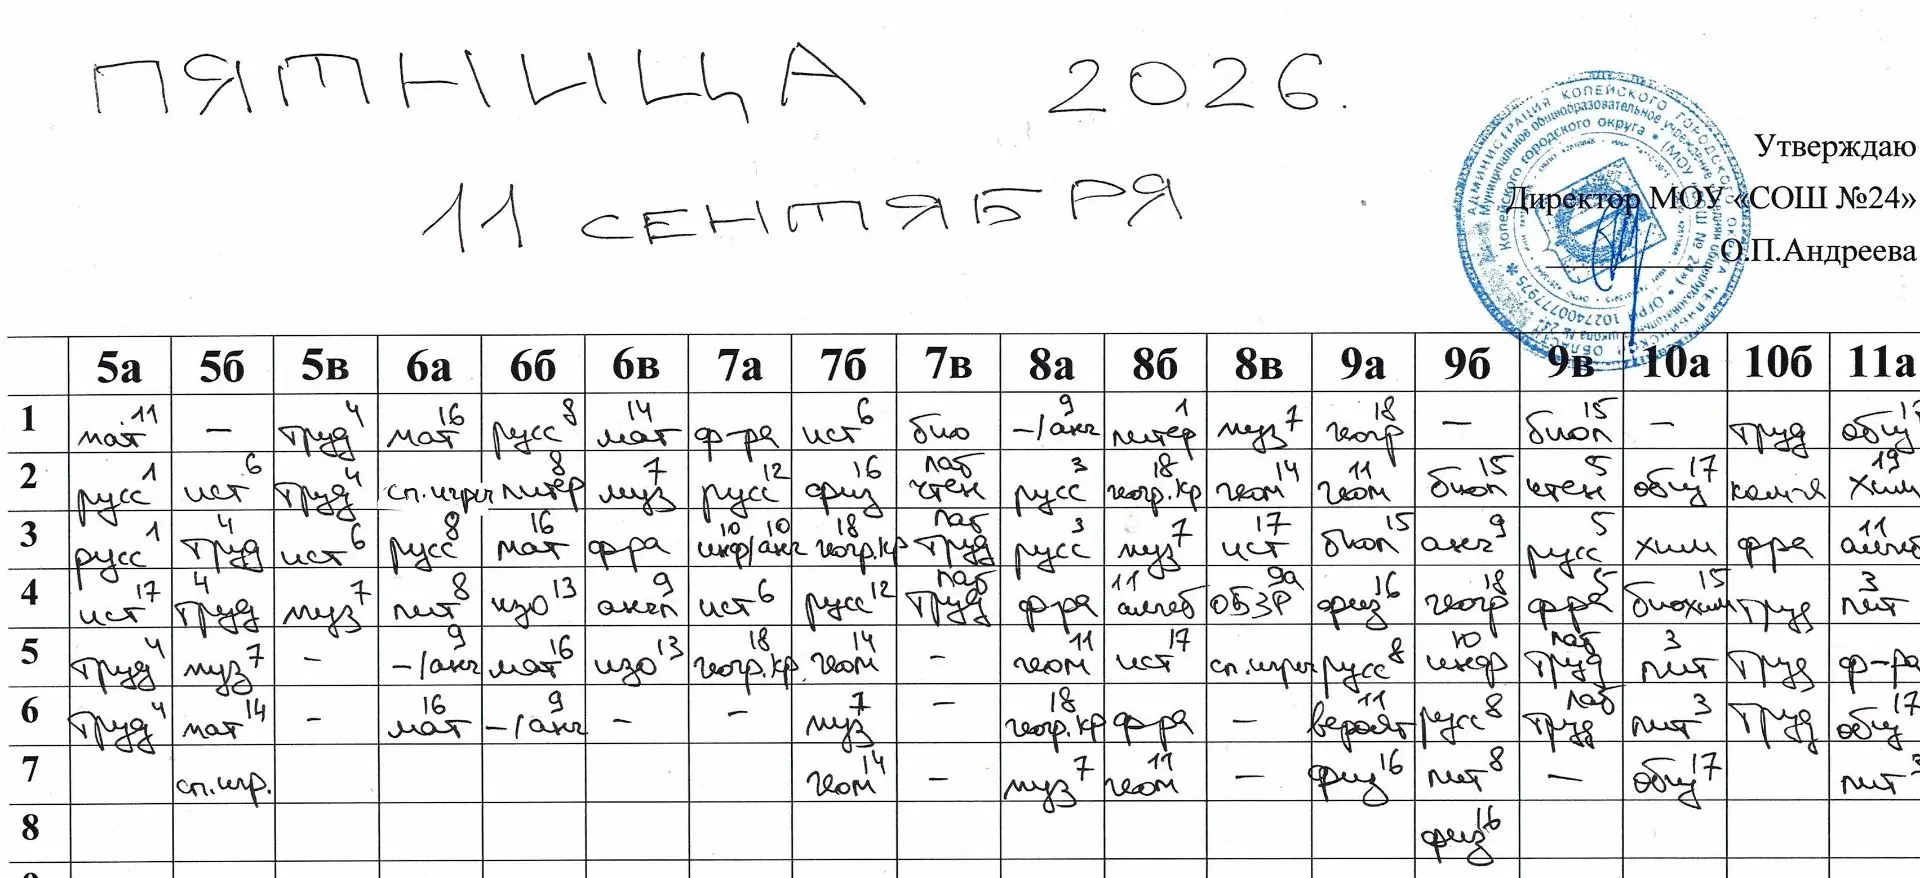 ПЯТНИЦА 2026.
11 СЕНТЯБРЯ
Утверждаю
Директор МОУ «СОШ №24»
О.П.Андреева
АДМИНИСТРАЦИЯ КОПЕЙСКОГО ГОРОДСКОГО ОКРУГА
Муниципальное общеобразовательное учреждение
Копейского городского округа
1027400777975
5а 5б 5в 6а 6б 6в 7а 7б 7в 8а 8б 8в 9а 9б 9в 10а 10б 11а
1 мат 11 – труд 4 мат 16 русс 8 мат 14 ф-ра ист 6 био –/анг 9 литер 1 муз 7 геогр 18 – биол 15 – труд общ 17
2 русс 1 ист 6 труд 4 сп.игры литер 8 муз 7 русс 12 физ 16 лаб чтен русс 3 геогр.кр 18 геом 14 геом 11 биол 15 чтен 5 общ 17 хим 19
3 русс 1 труд 4 ист 6 русс 8 мат 16 ф-ра инф/анг 10 10 геогр.кр 18 лаб труд русс 3 муз 7 ист 17 биол 15 анг 9 русс 5 хим ф-ра алгеб 11
4 ист 17 труд 4 муз 7 лит 8 изо 13 англ 9 ист 6 русс 12 лаб труд ф-ра алгеб 11 ОБЗР 9а физ 16 геогр 18 ф-ра 5 биохим 15 труд лит 3
5 труд 4 муз 7 – –/анг 9 мат 16 изо 13 геогр.кр. 18 геом 14 – геом 11 ист 17 сп.игры русс 8 инф 10 лаб труд лит 3 труд ф-ра
6 труд 4 мат 14 – мат 16 –/анг 9 – – муз 7 – геогр.кр 18 ф-ра – вероят 11 русс 8 лаб труд лит 3 труд общ 17
7 сп.игр. геом 14 – муз 7 геом 11 – физ 16 лит 8 – общ 17 лит 3
8 физ 16